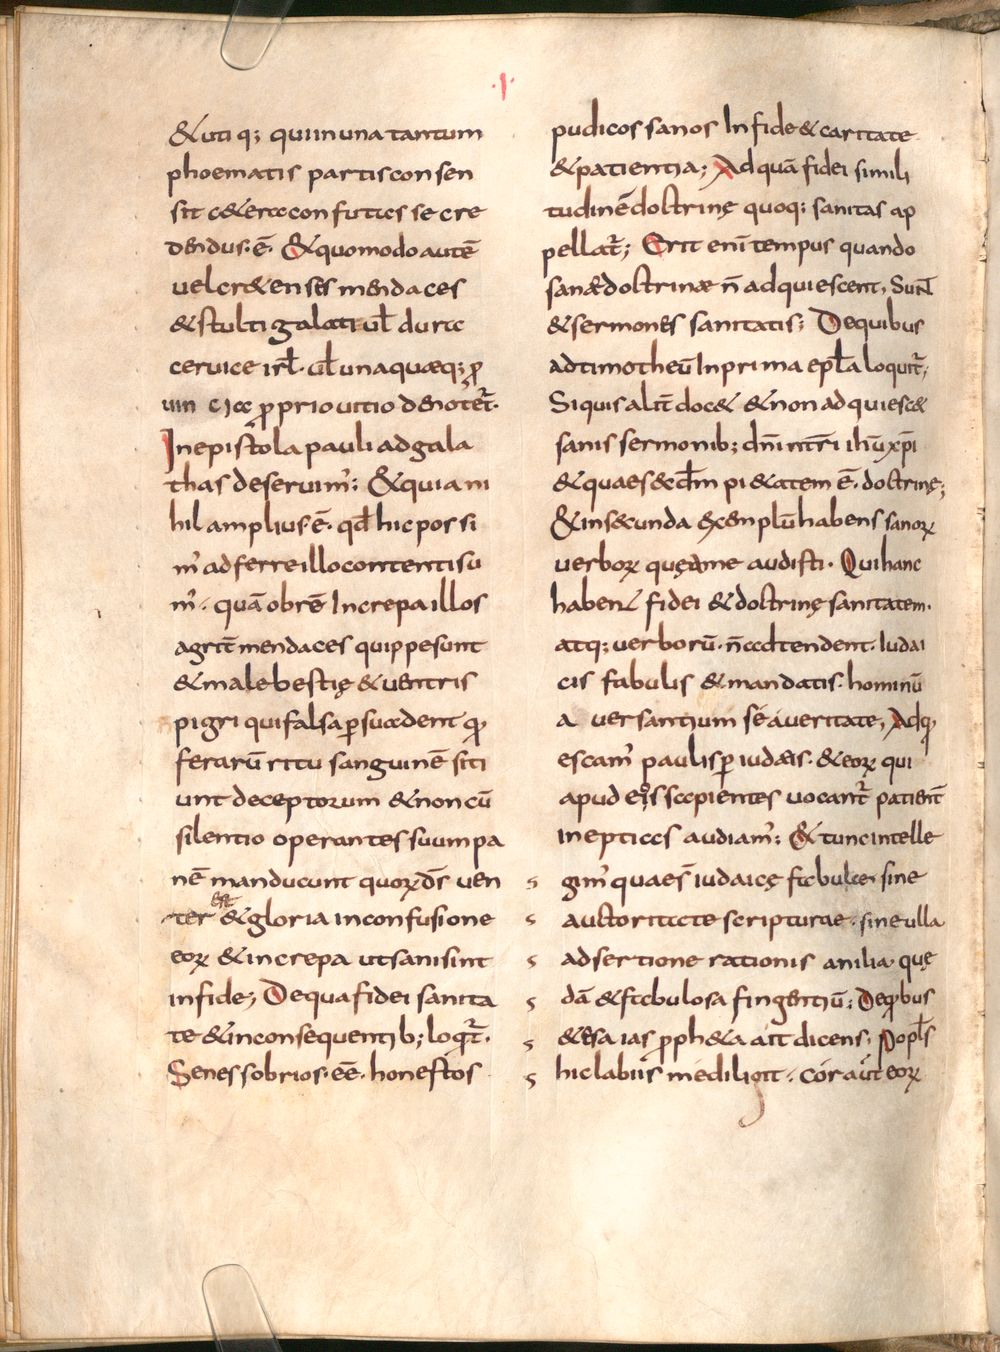 ·I·
&uti q; quiin una tantum
phoematis partis consen
sit c&eræ confutás se cre
dendus· ē· &quomodo autē
vel cr&enses mendaces
&stulti galati ul̄ dura
ceruice irl̄· ul̄ unaquæq; p̱
uin cia p̱prio uitio denotet̄·
In epistola pauli ad gala
thas deseruim̄; &quia ni
hil amplius· ē· qd̄ hic possi
m̄ adferre illo contenti su
m̄· quā obrē Increpa illos
agrit̄ mendaces quippe sunt
&male bestię &uentris
pigri qui falsa p̱suadent q̱
ferarū ritu sanguinē siti
unt deceptorum &non cū
silentio operantes suum pa
nē manducunt quoꝝ d̄s uen
ter est &gloria in confusione
eoꝝ &increpa ut sani sint
in fide; De qua fidei sanita
te &in consequentib; loq̄t̄r·
Senes sobrios· eē· honestos
pudicos sanos In fide &caritate
&patientia; Ad quā fidei simili
tudinē doctrinę quoq; sanitas ap
pellat̄; Erit enī tempus quando
sanæ doctrinæ n̄ adquiescent, Sunt
&sermones sanitatis; De quibus
ad timotheū In prima epl̄a loquit̄,
Si quis alit̄ doc& &non adquiesc&
sanis sermonib; dn̄i nr̄i ihū xp̄i
&quae s&cd̄m pi&atem ē· doctrinę;
&in s&cunda exemplū habens sanoꝝ
uerboꝝ quę a me audisti· Qui hanc
habent fidei &doctrinę sanitatem·
atq; uerborū· n̄ adtendent· Iudai
cis fabulis &mandatis· hominū
a uersantium se a ueritate, Adq̱
escam̄ paulisp̱ iudæis· &eoꝝ qui
apud eos sapientes uocant̄ patient̄
ineptias audiam̄; &tunc intelle
gim̄ quae s̄ iudaicę fabulæ· sine
auctoritate scripturae· sine ulla
adsertione rationis anilia· quę
dā &fabulosa fingentiū; De q̱bus
&esaias p̱ph&a ait dicens· Popl̄s
hic labiis me diligit· cor aut̄ eoꝝ
s
s
s
s
s
s